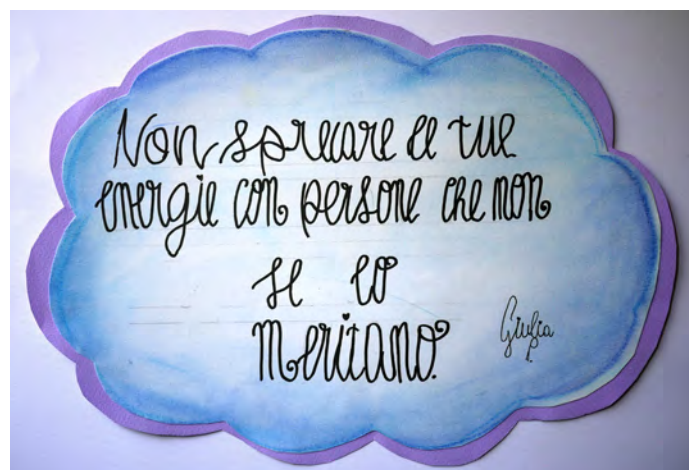 Non sprecare le tue
energie con persone che non
se lo
meritano.
Giulia